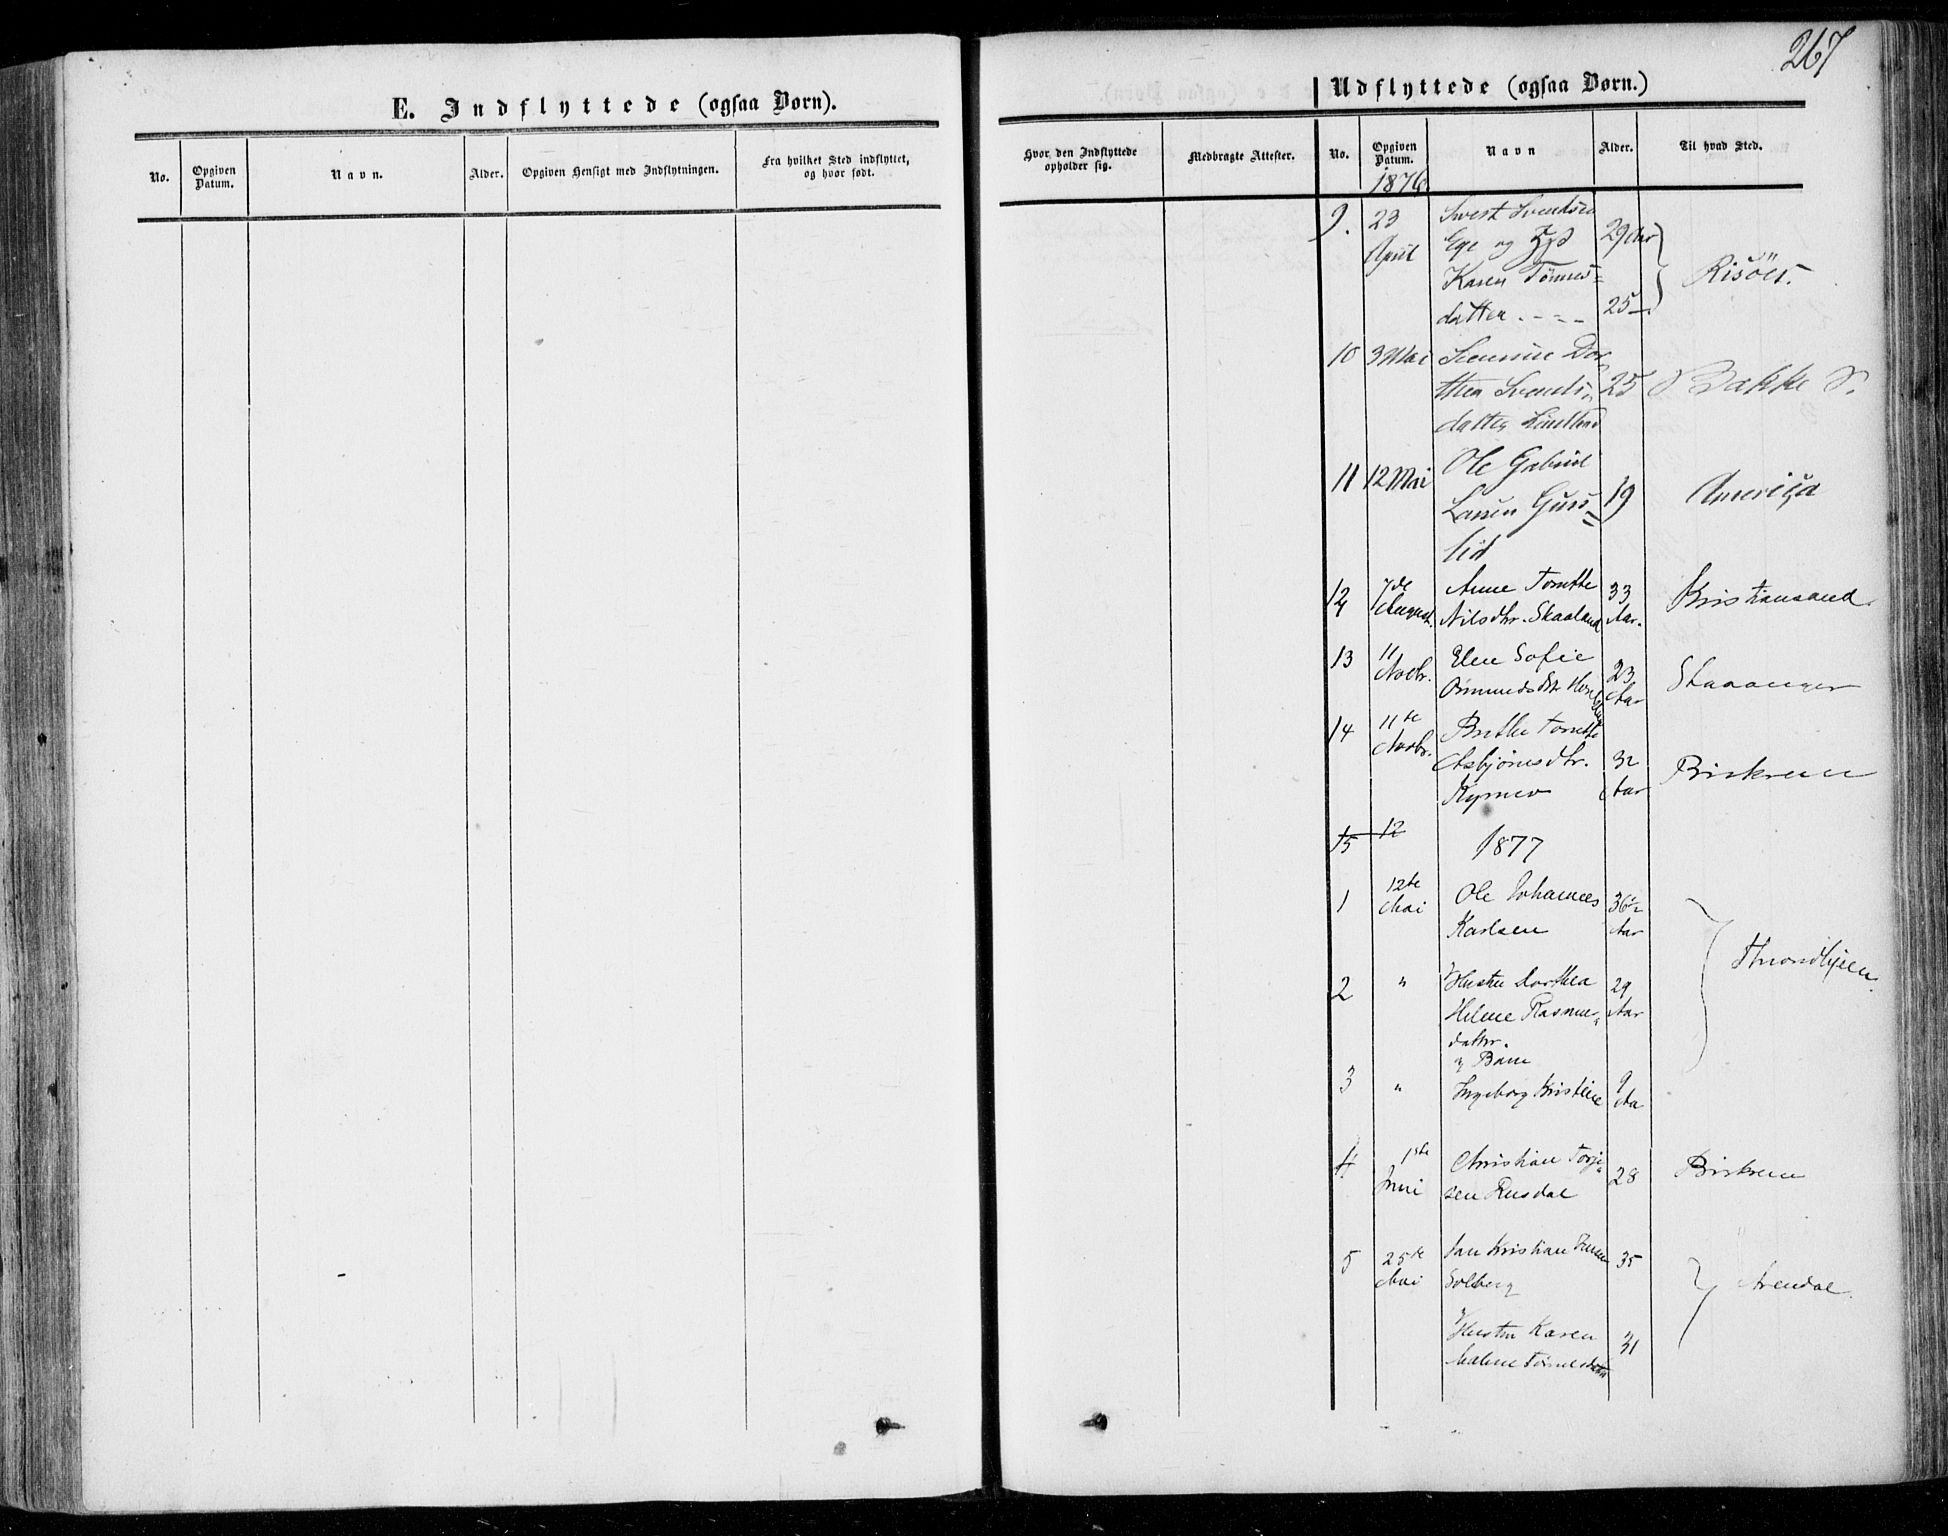 267
E. Indflyttede (ogsaa Børn).
No.
Opgiven Datum.
Navn.
Alder.
Opgiven Hensigt med Indflytningen.
Fra hvilket Sted indflyttet, og hvor født.
Hvor den Indflyttede opholder sig.
Medbragte Attester.
Udflyttede (ogsaa Børn.)
No.
Opgiven Datum.
Navn
Alder.
Til hvad Sted.
1876
9. 23 Svendsen
April Ege og 29 Aar
Karen Tønnes= Risöer.
datter. - - - 25 -
10 3 Mai Dor
thea Svends 25 Bakke S.
datter
11 12 Mai Ole Gabriel
Larsen Gurs= 19 America
lid
12 7de Anne Tomette 33 Kristiansand.
August. Nilsdtr. Skaaland Aar.
13 11 Elen Sofie 23 Stavanger
Novbr. Osmundsdtr Aar
14 11te Berthe Tomette
Novbr. Asbjørnsdtr. 32 Birkrem
Aar
15 12
1877
1 12te Ole Johannes 36½
Mai Karlsen Aar
Throndhjem.
2 " Hustru Dorthea 29
Helene Rasmus= Aar
datter.
og Barn
3 " Ingeborg Kristine 9 Aa
4 1ste Christian Torje= 28 Birkrem
Juni sen Rusdal
5 25de Jan Kristian 35
Mai Solberg
Arendal.
Hustru Karen 31
Malene Tønnesdatter